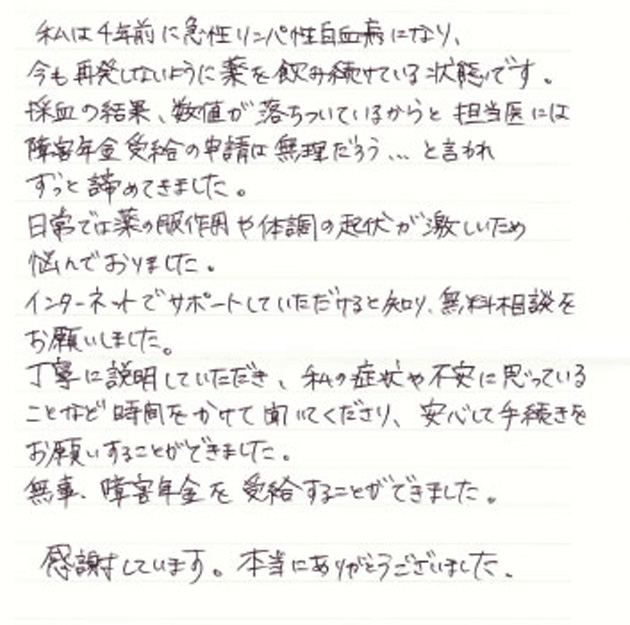 私は4年前に急性リンパ性白血病になり、
今も再発しないように薬を飲み続けている状態です。
採血の結果、数値が落ちついているからと担当医には
障害年金受給の申請は無理だろう…と言われ
ずっと諦めてきました。
日常では薬の服作用や体調の起伏が激しいため
悩んでおりました。
インターネットでサポートしていただけると知り、無料相談を
お願いしました。
丁寧に説明していただき、私の症状や不安に思っている
ことなど時間をかけて聞いてくださり、安心して手続きを
お願いすることができました。
無事、障害年金を受給することができました。
感謝しています。本当にありがとうございました。